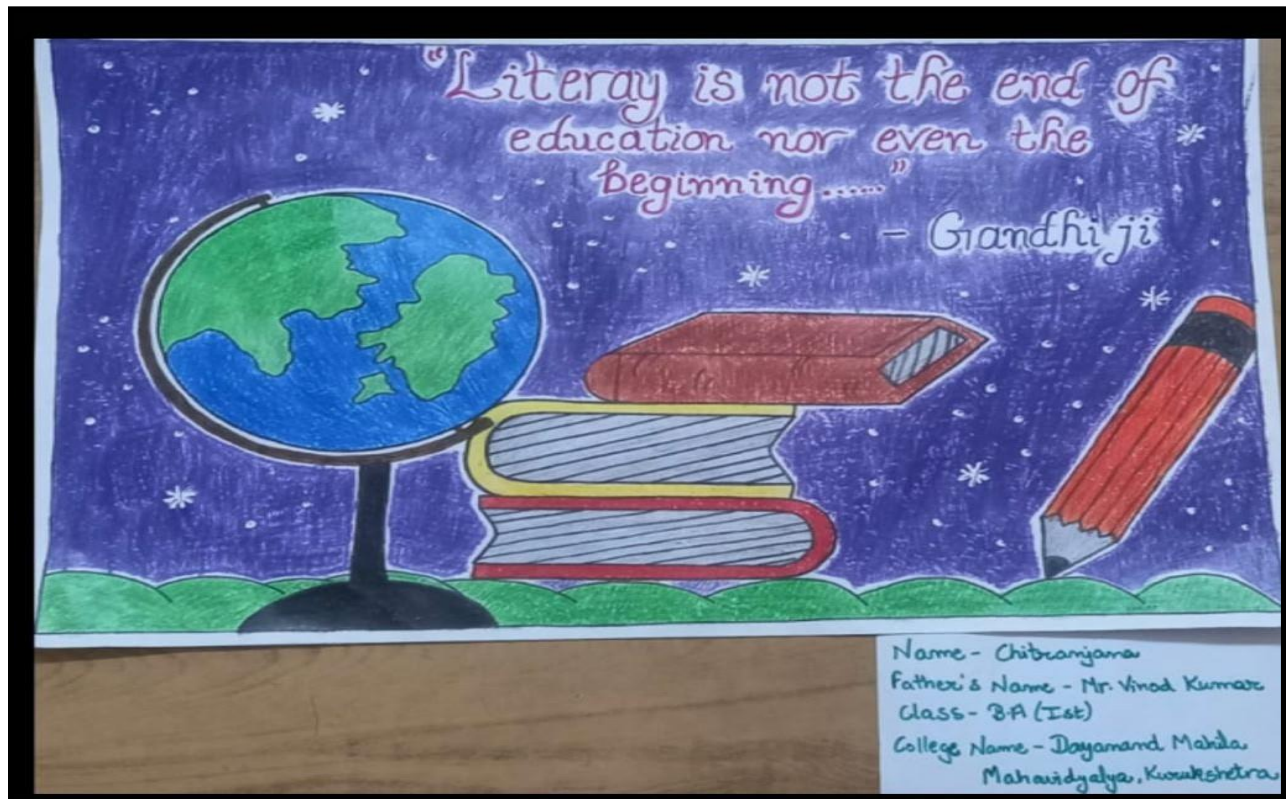 "Literay is not the end of
education nor even the
beginning......"
- Gandhi ji
Name - Chitranjana
Father's Name - Mr. Vinod Kumar
Class - B.A (Ist)
College Name - Dayanand Mahila
Mahavidyalya, Kurukshetra